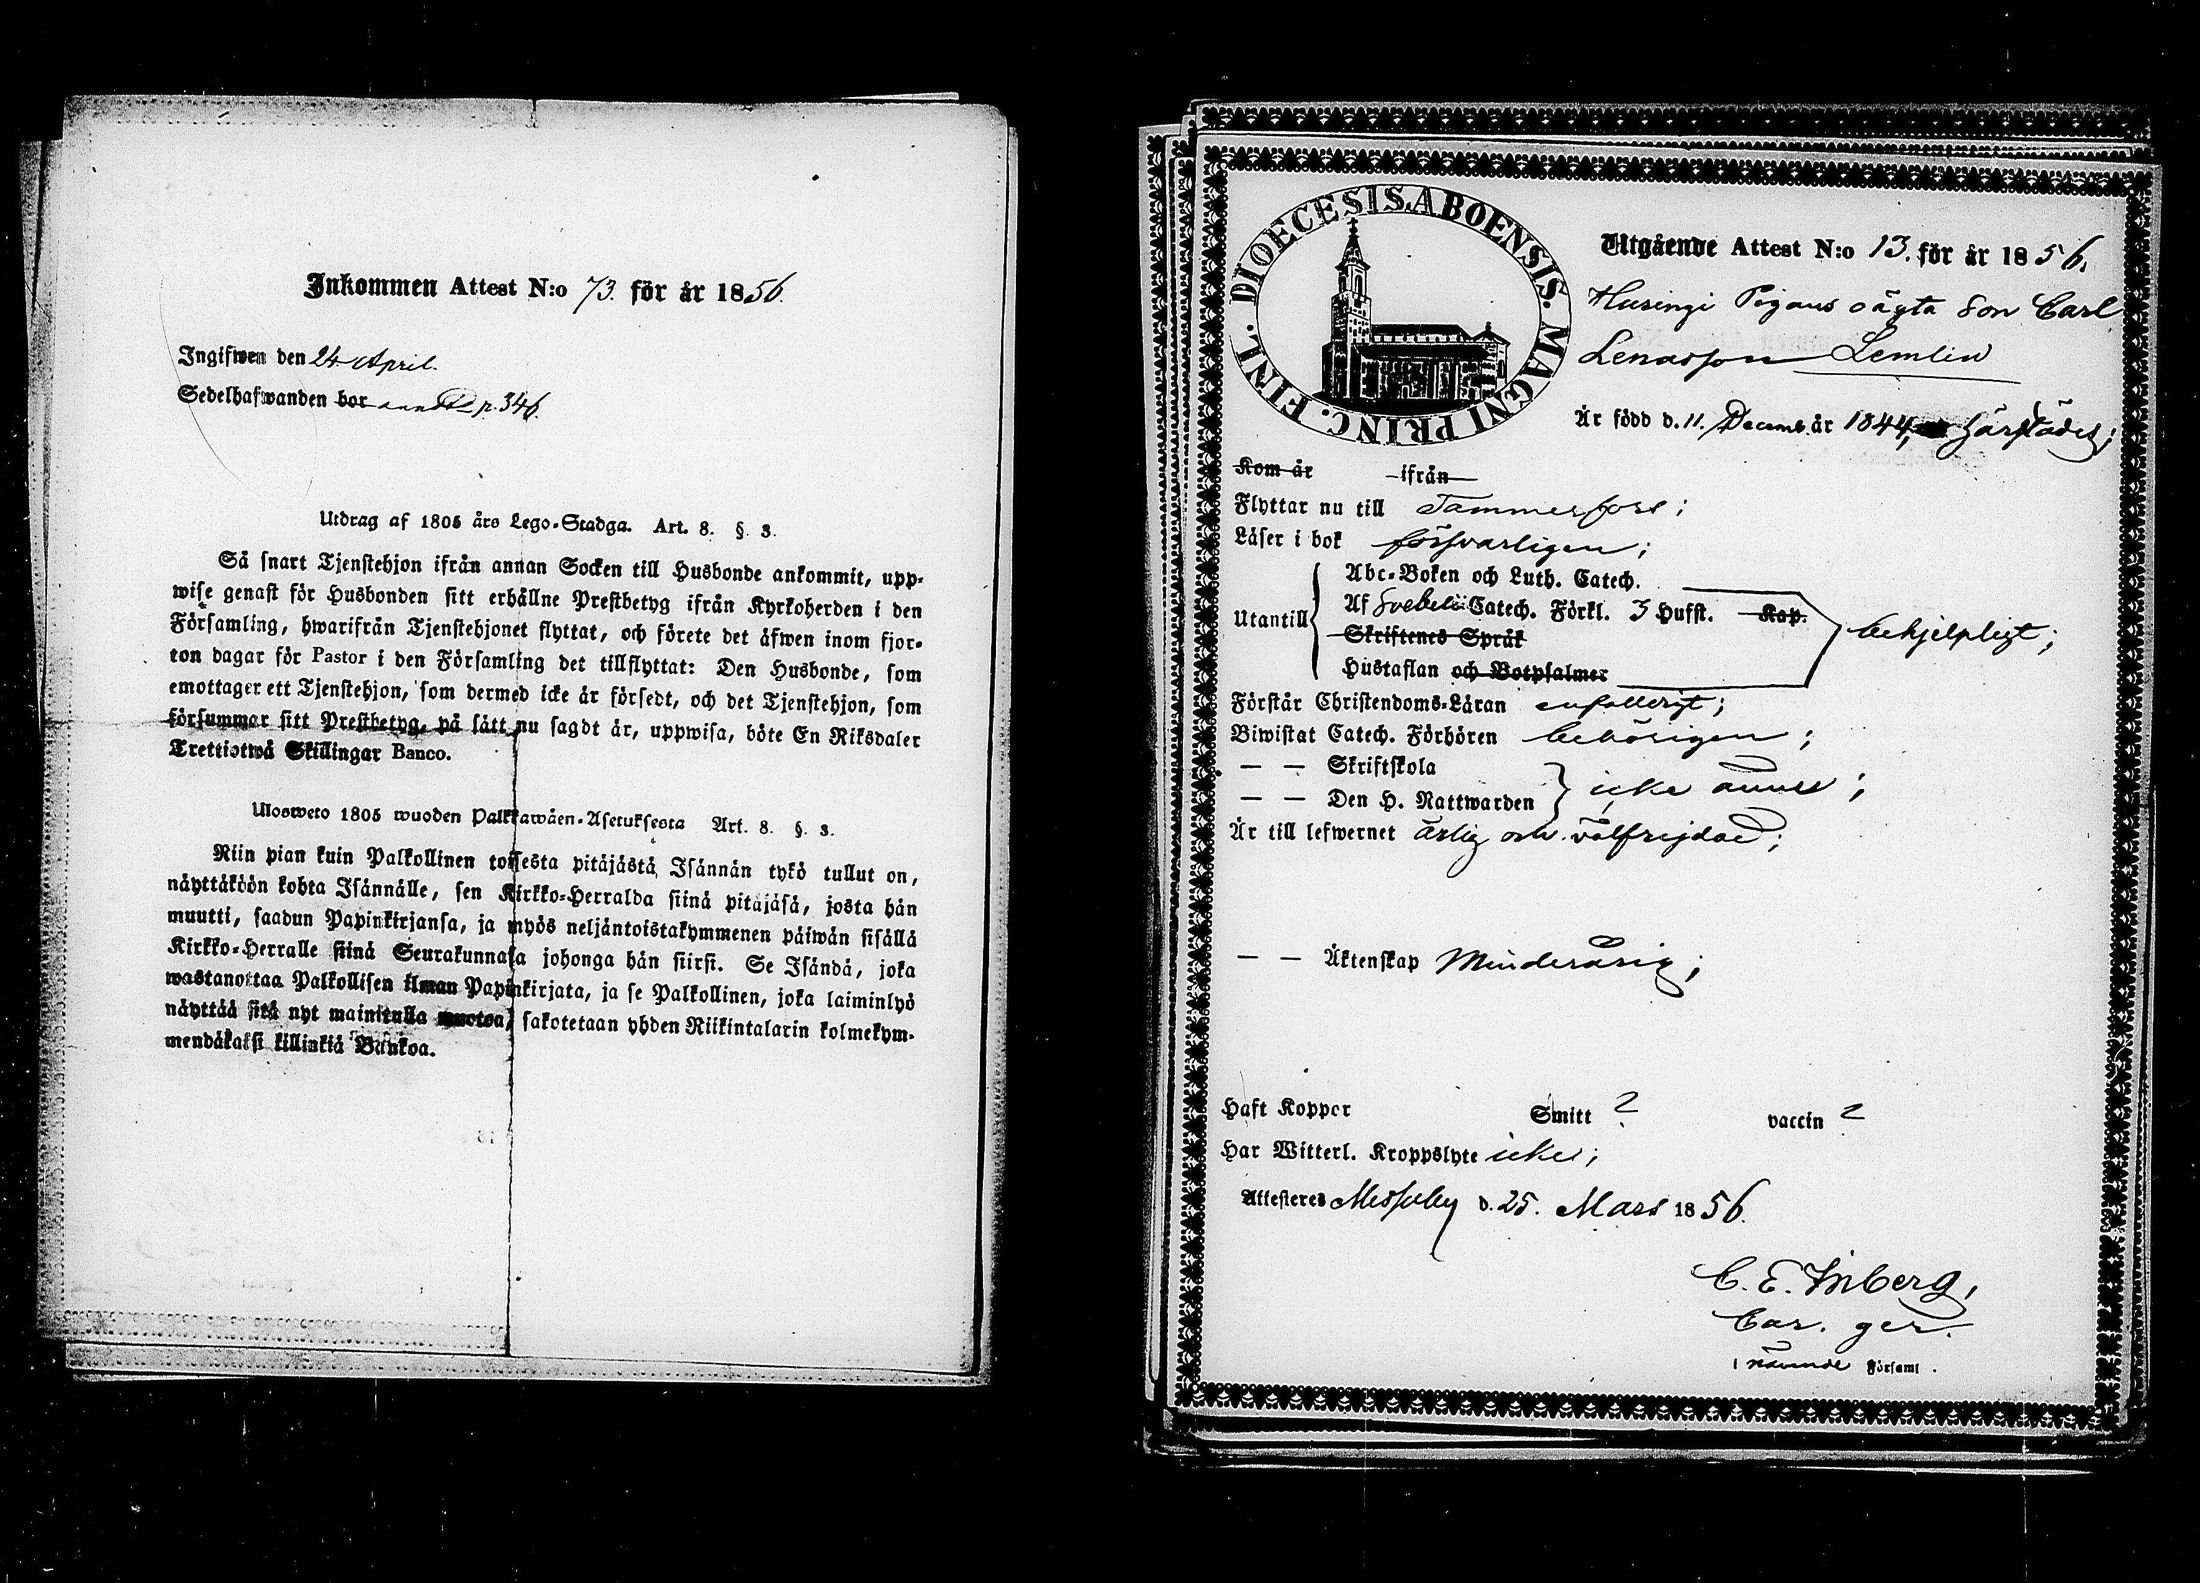 Inkommen Attest N:o 73. för år 1856.
Ingifwen den 24 April.
Sedelhafwanden bor p. 346.
Utdrag af 1805 års Lego-Stadga. Art. 8. §. 3.
Så snart Tjenstehjon ifrån annan Socken till Husbonde ankommit, upp-
wise genast för Husbonden sitt erhållne Prestbetyg ifrån Kyrkoherden i den
Församling, hwarifrån Tjenstehjonet flyttat, och förete det äfwen inom fjor-
ton dagar för Pastor i den Församling det tillflyttat: Den Husbonde, som
emottager ett Tjenstehjon, som dermed icke är försedt, och det Tjenstehjon, som
försummar sitt Prestbetyg, på sätt nu sagdt är, uppwisa, böte En Riksdaler
Trettiotwå Skillingar Banco.
Ulosweto 1805 wuoden Palkkawäen-Asetuksesta Art. 8. §. 3.
Niin pian kuin Palkollinen toisesta pitäjästä Isännän tykö tullut on,
näyttäköön kohta Isännälle, sen Kirkko-Herralda siinä pitäjäsä, josta hän
muutti, saadun Papinkirjansa, ja myös neljäntoistakymmenen päiwän sisällä
Kirkko-Herralle siinä Seurakunnasa johonga hän siirsi. Se Isändä, joka
wastanottaa Palkollisen ilman Papinkirjata, ja se Palkollinen, joka laiminlyö
näyttää sitä nyt mainitulla muotoa, sakotetaan yhden Riikintalarin kolmekym-
mendäkaksi killinkiä Bankoa.
DIOECESIS ABOENSIS. MAGNI PRINC. FINL.
Utgående Attest N:o 13. för år 1856.
Husingi Pigans oägta Son Carl
Lenasson Lemlin
Är född d. 11. Decemb. år 1844, härstädes;
Kom år ifrån
Flyttar nu till Tammerfors;
Läser i bok försvarligen;
Utantill
Abc-Boken och Luth. Catech.
Af Svebelii Catech. Förkl. 3 Hufst. Kap.
Skriftenes Språk
Hustaflan och Botpsalmer
behjelpligt;
Förstår Christendoms-Läran enfalldigt;
Biwistat Catech. Förhören behörigen;
— — Skriftskola
— — Den H. Nattwarden
icke ännu;
Är till lefwernet ärlig och välfrejdad;
— — Äktenskap Minderårig;
Haft Koppor Smitt ? vaccin ?
Har Witterl. Kroppslyte icke;
Attesteres Messuby d. 25. Mars 1856.
C. E. Inberg,
Cap. ger.
i nämnde Församl.